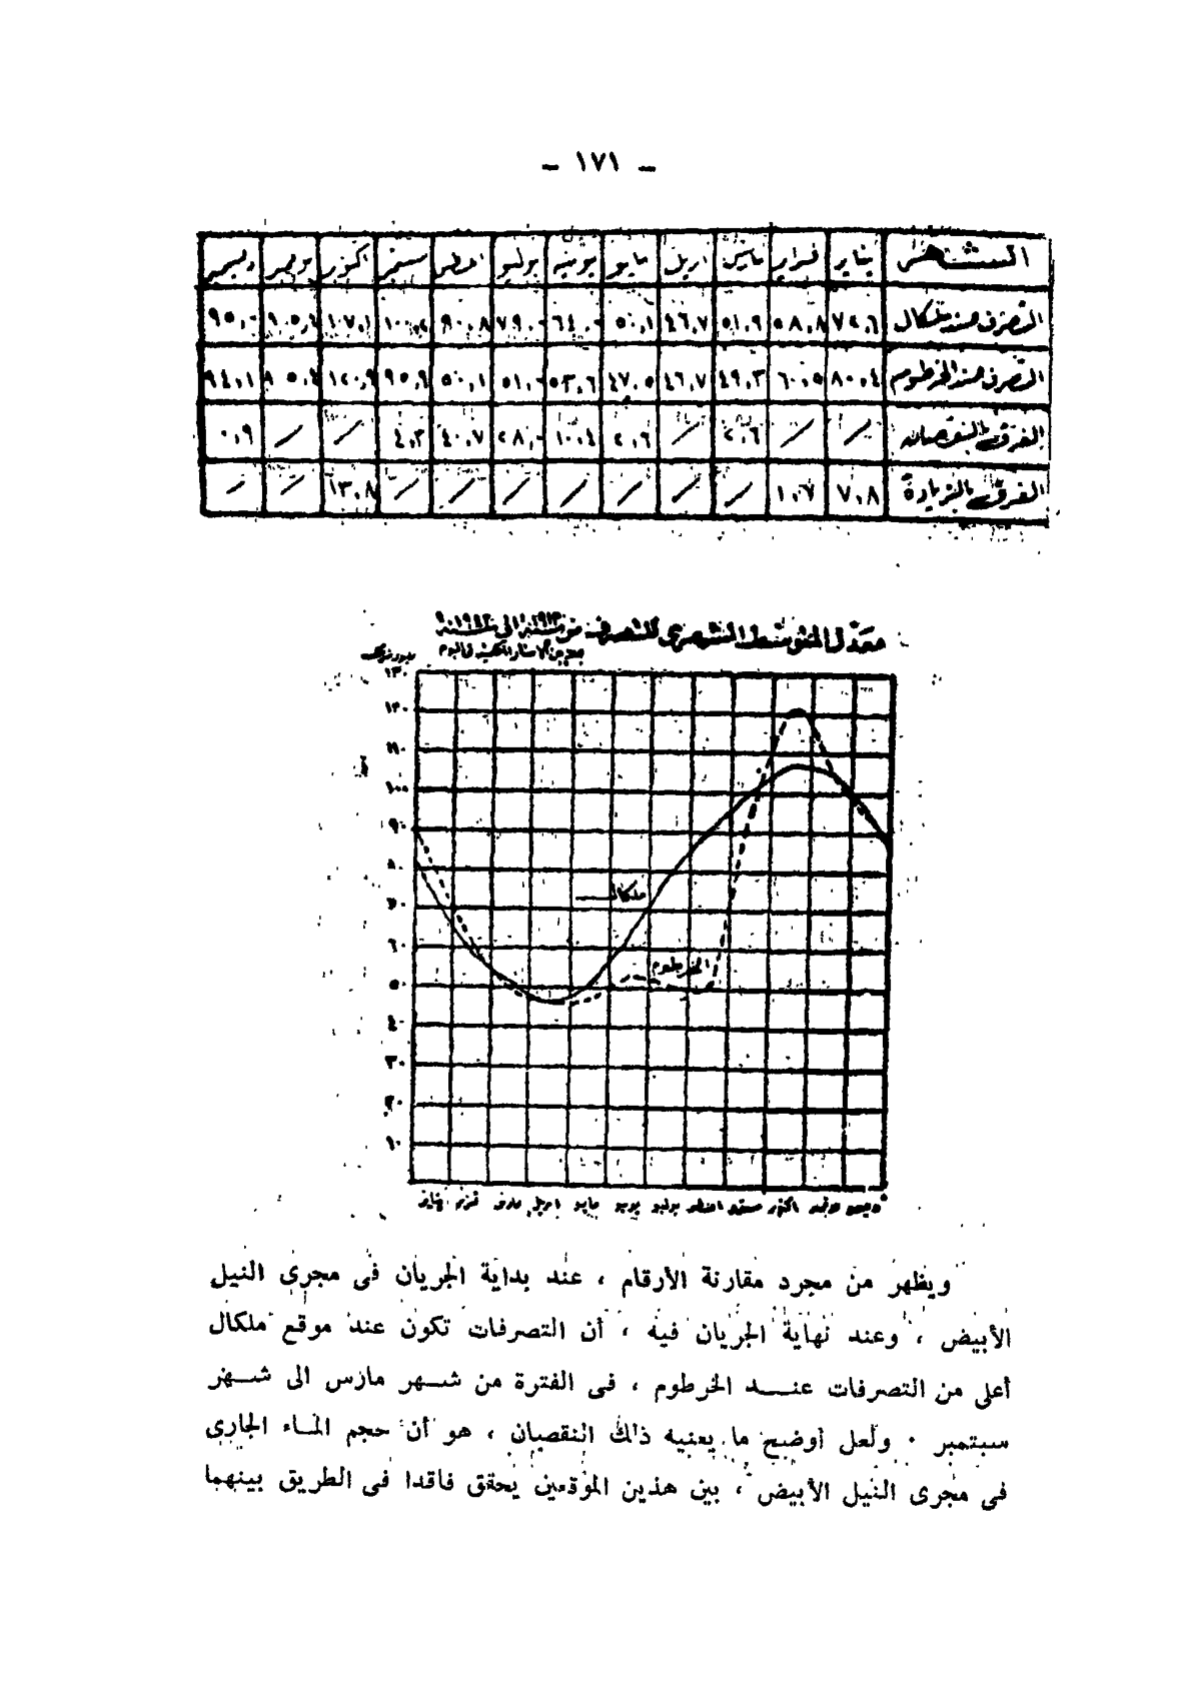 ـ ١٧١ ـ
الشهر يناير فبراير مارس ابريل مايو يونيه يوليو اغسطس سبتمبر اكتوبر نوفمبر ديسمبر
التصرف عند ملكال ٧٢,٦ ٥٨,٨ ٥١,٩ ٤٦,٧ ٥٠,١ ٦٤,٠ ٧٩,٠ ٩٠,٨ ١٠٠,٢ ١٠٧,١ ١٠٥,٤ ٩٥,٠
التصرف عند الخرطوم ٨٠,٤ ٦٠,٥ ٤٩,٣ ٤٦,٧ ٤٧,٥ ٥٣,٦ ٥١,٠ ٥٠,١ ٩٥,٩ ١٢٠,٩ ٩٤,١
الفرق بالنقصان / / ٢,٦ / ٢,٦ ١٠,٤ ٢٨,٠ ٤٠,٧ ٤,٣ / / ٠,٩
الفرق بالزيادة ٧,٨ ١,٧ / / / / / / / ١٣,٨ / /
معدل المتوسط الشهري للتصرف من سنة ١٩١٢ الى سنة
بملايين الأمتار المكعبة في اليوم
١٣٠
١٢٠
١١٠
١٠٠
٩٠
٨٠
ملكال
٧٠
٦٠
الخرطوم
٥٠
٤٠
٣٠
٢٠
١٠
يناير فبراير مارس ابريل مايو يونيو يوليو اغسطس سبتمبر اكتوبر نوفمبر ديسمبر
ويظهر من مجرد مقارنة الأرقام ، عند بداية الجريان فى مجرى النيل
الأبيض ، وعند نهاية الجريان فيه ، أن التصرفات تكون عند موقع ملكال
أعلى من التصرفات عنــد الخرطوم ، فى الفترة من شــهر مارس الى شــهر
سبتمبر · ولعل أوضح ما يعنيه ذلك النقصان ، هو أن حجم المـاء الجارى
فى مجرى النيل الأبيض ، بين هذين الموقعين يحقق فاقدا فى الطريق بينهما